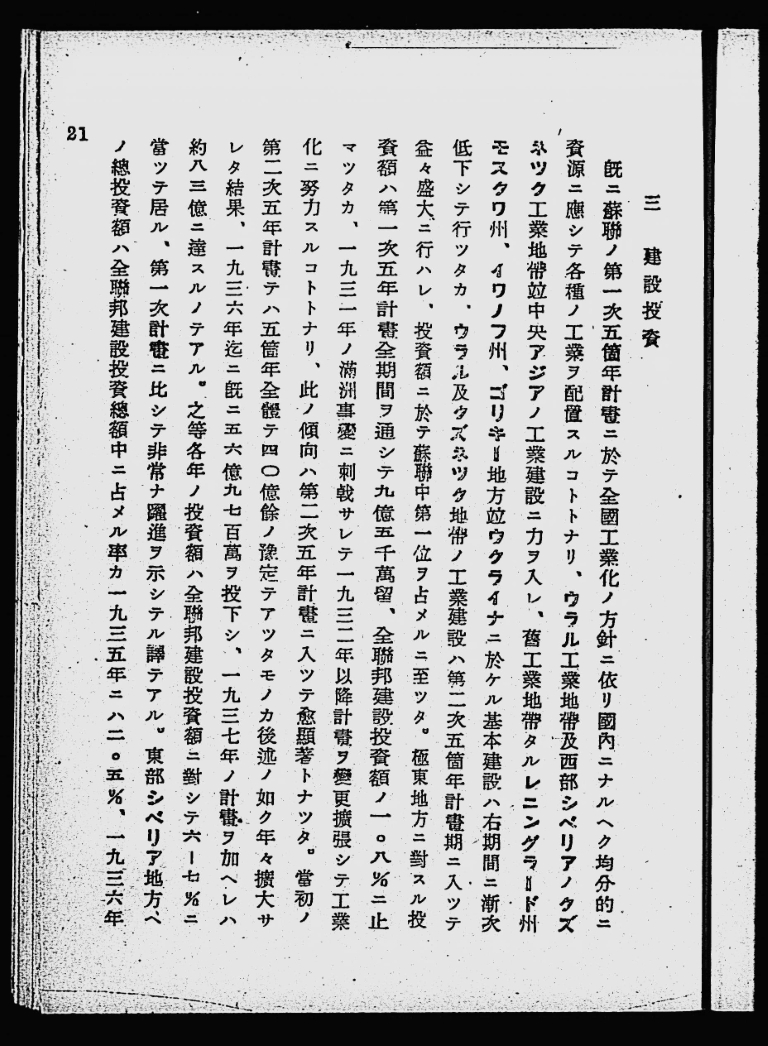 三　建設投資
既ニ蘇聯ノ第一次五箇年計畫ニ於テ全國工業化ノ方針ニ依リ國內ニナルヘク均分的ニ
資源ニ應シテ各種ノ工業ヲ配置スルコトトナリ、ウラル工業地帶及西部シベリアノクズ
ネツク工業地帶竝中央アジアノ工業建設ニ力ヲ入レ、舊工業地帶タルレニングラード州
モスクワ州、イワノフ州、ゴリキー地方竝ウクライナニ於ケル基本建設ハ右期間ニ漸次
低下シテ行ツタカ、ウラル及クズネツク地帶ノ工業建設ハ第二次五箇年計畫期ニ入ツテ
益々盛大ニ行ハレ、投資額ニ於テ蘇聯中第一位ヲ占メルニ至ツタ。極東地方ニ對スル投
資額ハ第一次五年計畫全期間ヲ通シテ九億五千萬留、全聯邦建設投資額ノ一。八％ニ止
マツタカ、一九三一年ノ滿洲事變ニ刺戟サレテ一九三二年以降計畫ヲ變更擴張シテ工業
化ニ努力スルコトトナリ、此ノ傾向ハ第二次五年計畫ニ入ツテ愈顯著トナツタ。當初ノ
第二次五年計畫テハ五箇年全體テ四〇億餘ノ豫定テアツタモノカ後述ノ如ク年々擴大サ
レタ結果、一九三六年迄ニ既ニ五六億九七百萬ヲ投下シ、一九三七年ノ計畫ヲ加ヘレハ
約八三億ニ達スルノテアル。之等各年ノ投資額ハ全聯邦建設投資額ニ對シテ六ー七％ニ
當ツテ居ル、第一次計畫ニ比シテ非常ナ躍進ヲ示シテル譯テアル。東部シベリア地方ヘ
ノ總投資額ハ全聯邦建設投資總額中ニ占メル率カ一九三五年ニハ二。五％、一九三六年
21